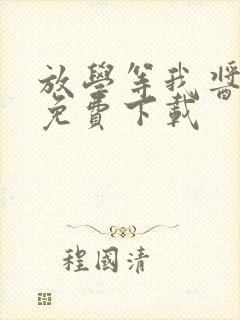 放學等我醬
免費下載
程國清